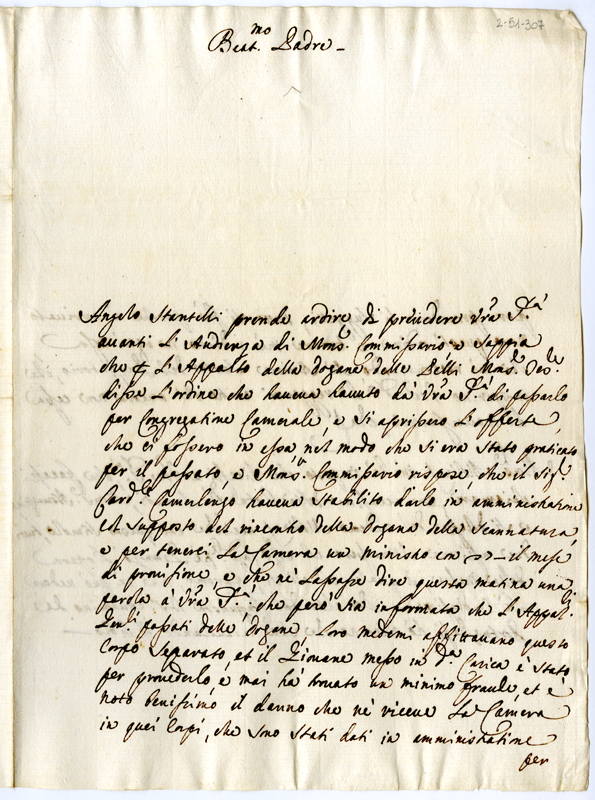 2-51-307
Beat.mo Padre
Angelo Stantelli prende ardire di prevedere Vra S.tà
auanti l'Audienza di Mons.r Commissario e Sappia
che l'Appalto della dogana delle Pelli Mons.r
disse l'ordine che haueua hauuto da Vra S.tà di passarlo
per Congregatine Camerale, e si aprissero l'offerte
che ci fossero in essa, nel modo che si era stato praticato
per il passato, e Mons.r Commissario rispose, che il Sig.r
Card.le Camerlengo haueua stabilito darlo in amministratione
el supposto del riscontro della dogana della Scannatura,
e per tenerci la Camera un ministro con il mese
di prouisione, e che nè lassasse dire questa matina una
parola à Vra S.tà, che però sia informata che l'Appal.ri
Gen.li passati delle dogane, loro medemi affittauano questo
Corpo separato, et il Giouane messo in d.a Carica è stato
per prouederlo, e mai hà trouato un minimo fraude, et è
noto benissimo il danno che nè riceue la Camera
in quei Corpi, che sono stati dati in amministratione
per